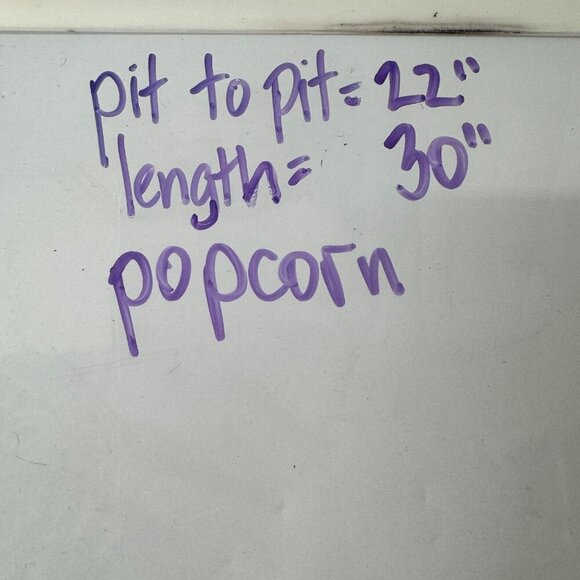 pit to pit= 22"
length= 30"
popcorn